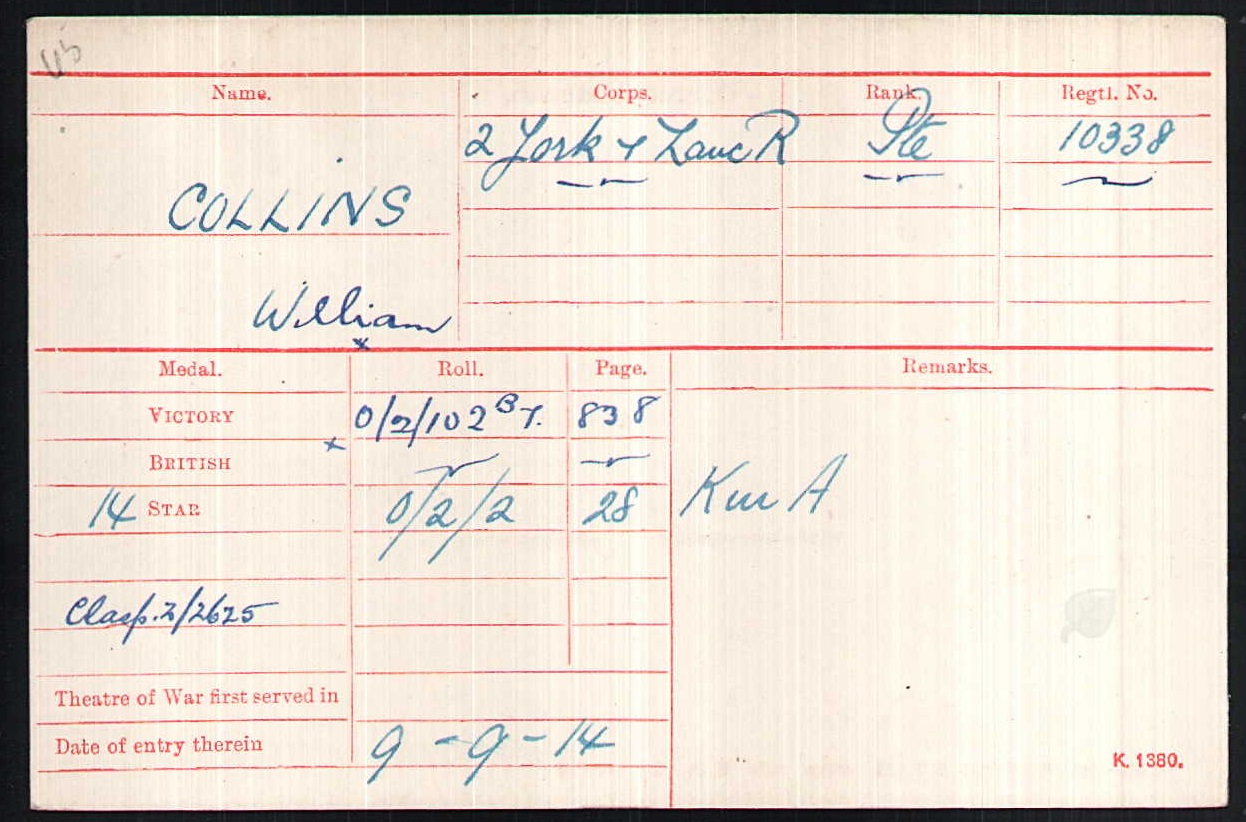 Name. Corps. Rank. Regtl. No.
2 York & Lanc R Pte 10338
COLLINS
William
Medal. Roll. Page. Remarks.
VICTORY 0/2/102 B7. 838
BRITISH
14 STAR 0/2/2 28 K in A
Clasp. 2/2625
Theatre of War first served in
Date of entry therein 9 - 9 - 14
K. 1380.